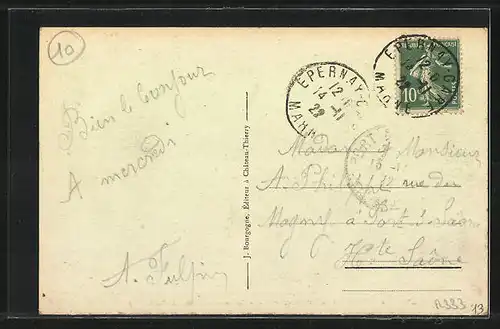 10
Bien le bonjour
A mercredi
J. Bourgogne, Éditeur à Château-Thierry
EPERNAY
12
14 -11
22
MARNE
EPERNAY
MARNE
10
Madame et Monsieur
A. Philippe rue du
Magny à Port s Saône
Hte Saône
13